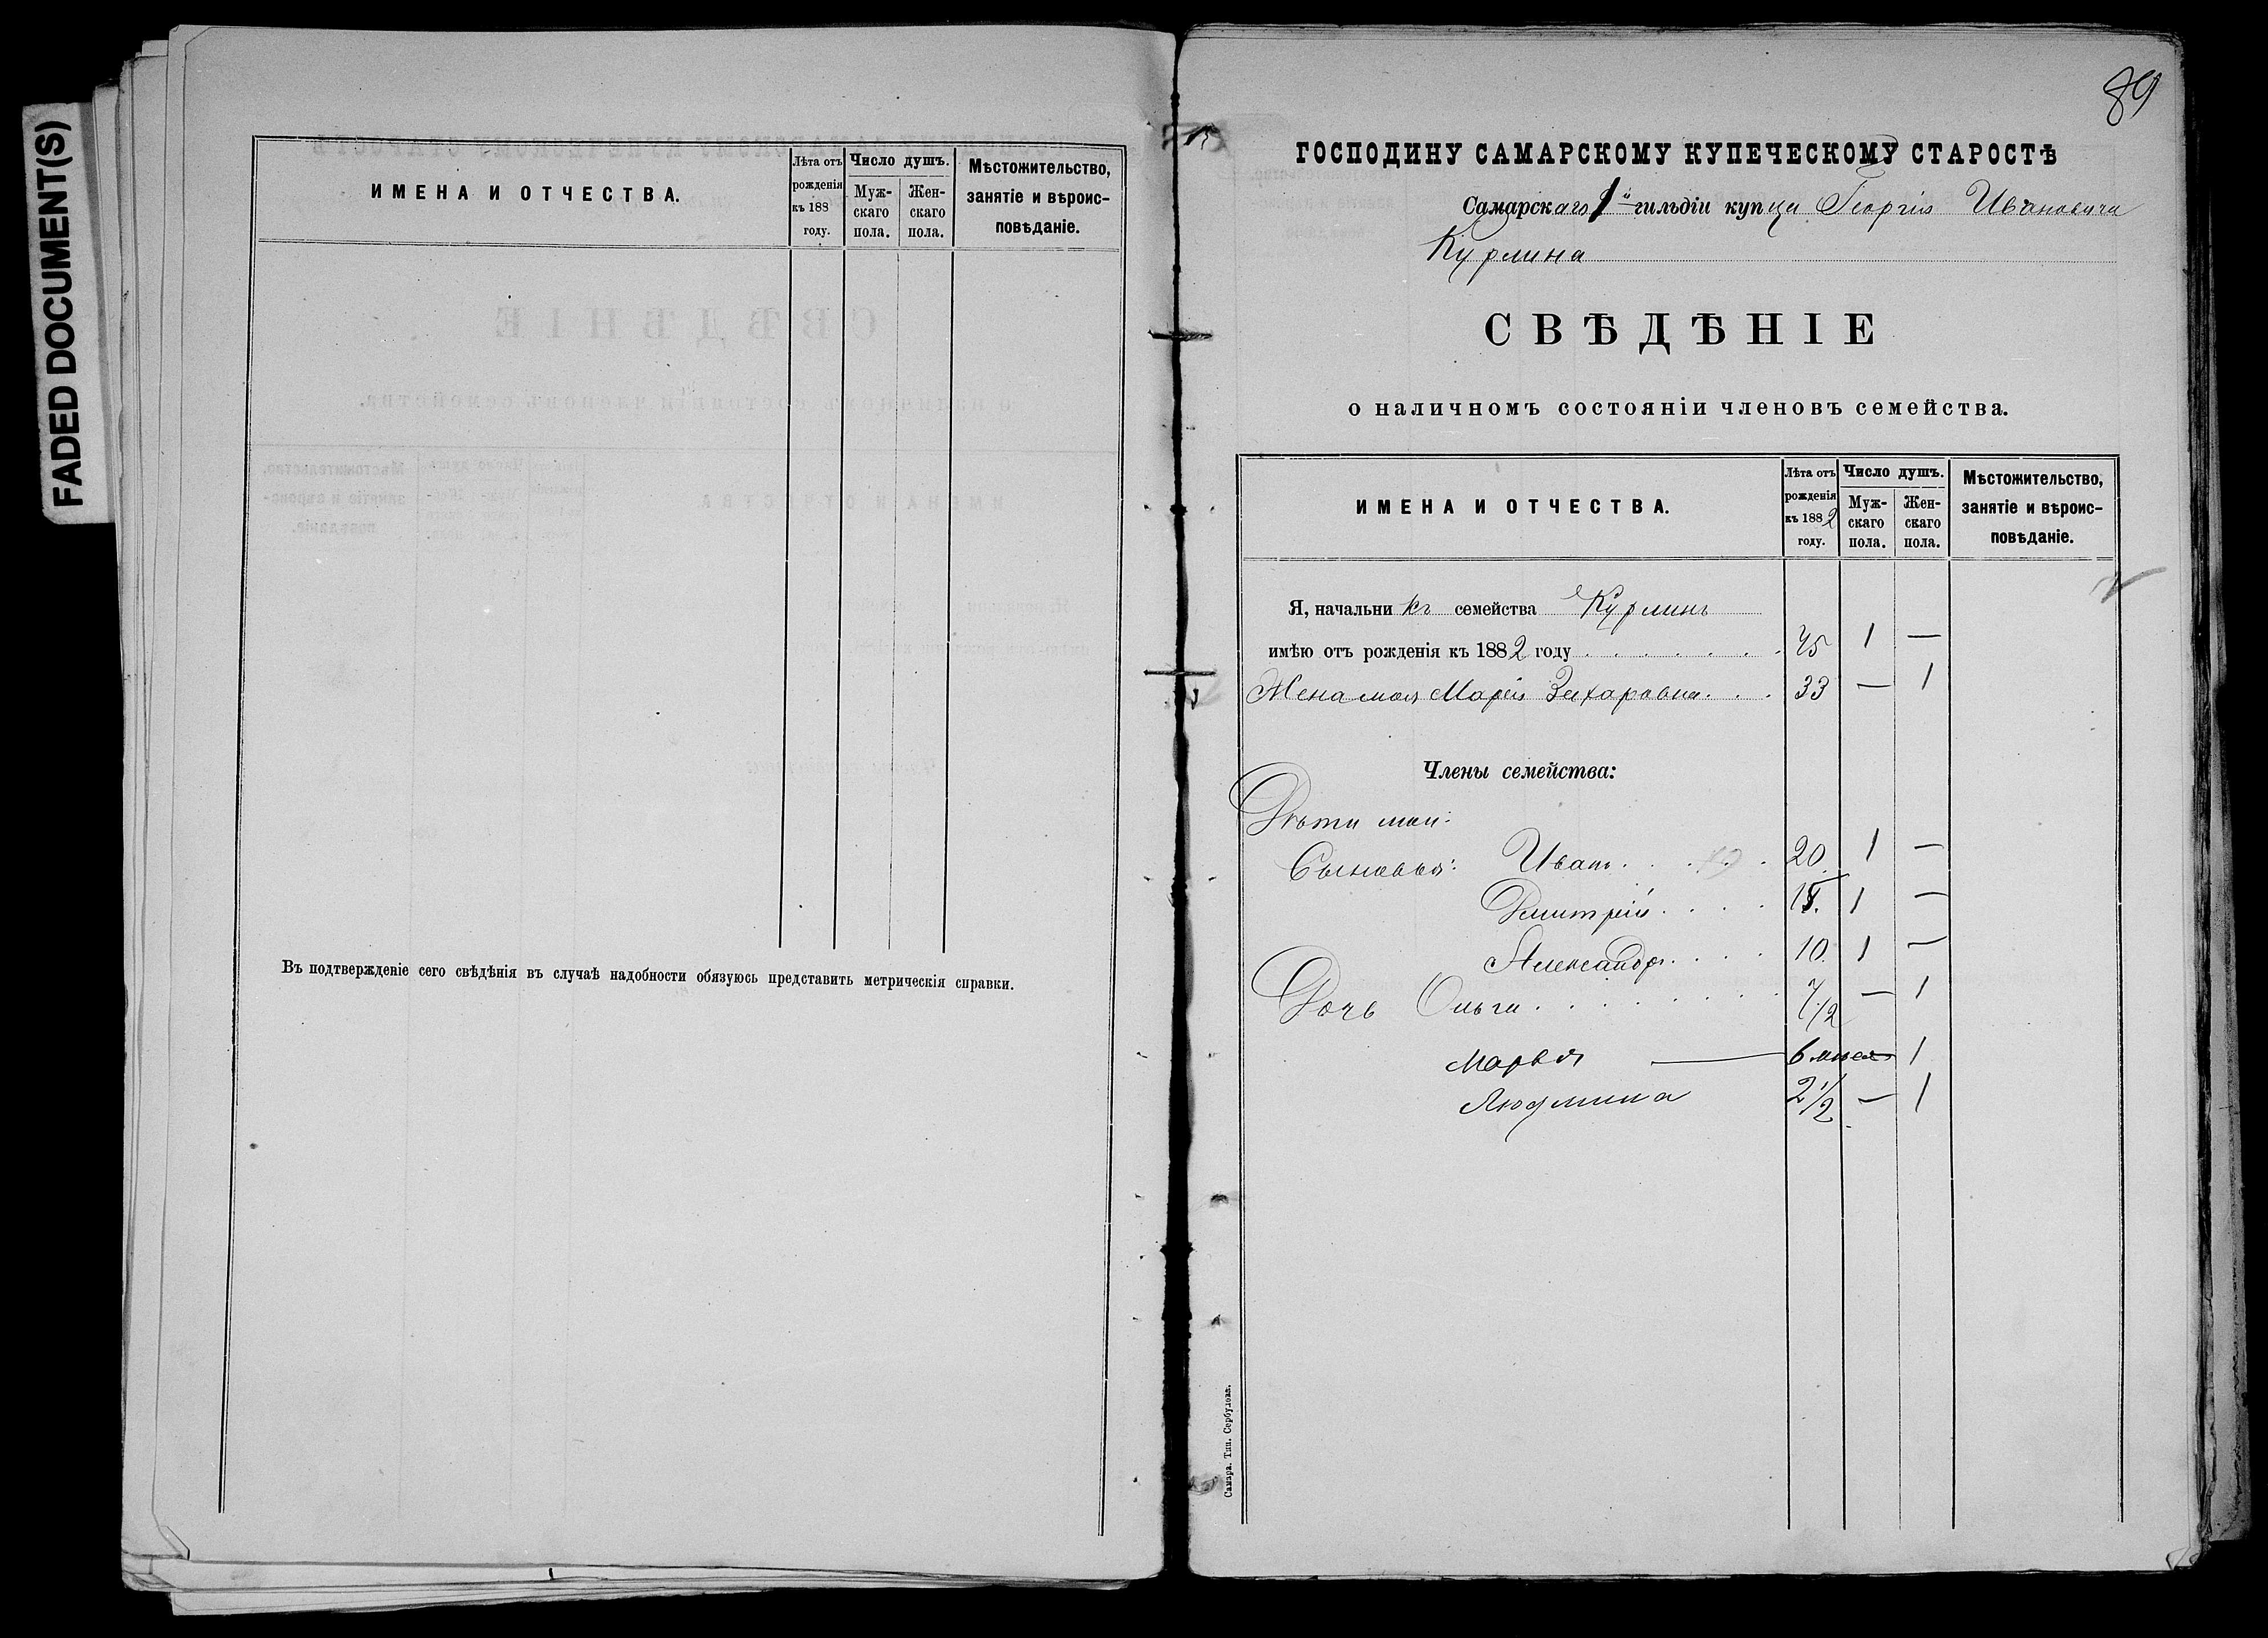 FADED DOCUMENT(S)
ИМЕНА И ОТЧЕСТВА.
Лѣта отъ рожденія къ 188 году.
Число душъ.
Муж-скаго пола.
Жен-скаго пола.
Мѣстожительство, занятіе и вѣроис-повѣданіе.
Въ подтвержденіе сего свѣдѣнія въ случаѣ надобности обязуюсь представить метрическія справки.
89
ГОСПОДИНУ САМАРСКОМУ КУПЕЧЕСКОМУ СТАРОСТѢ
Самарскаго 1й гильдіи купца Георгія Ивановича
Курлина
СВѢДѢНІЕ
о наличномъ состояніи членовъ семейства.
ИМЕНА И ОТЧЕСТВА.
Лѣта отъ рожденія къ 1882 году.
Число душъ.
Муж-скаго пола.
Жен-скаго пола.
Мѣстожительство, занятіе и вѣроис-повѣданіе.
Я, начальникъ семейства Курлинъ
имѣю отъ рожденія къ 1882 году . . . . . . . 45 1 —
Жена моя Марія Захаровна . . . 33 — 1
Члены семейства:
Дѣти мои:
Сыновья: Иванъ . . . . . 20 1 —
Дмитрій . . . . 1 —
Александръ . . . . 10. 1 —
Дочь Ольга . . . . . . . 7 1/2 — 1
Марья — 6 мѣся 1
Людмила 2 1/2 — 1
Самара. Тип. Сербулова.